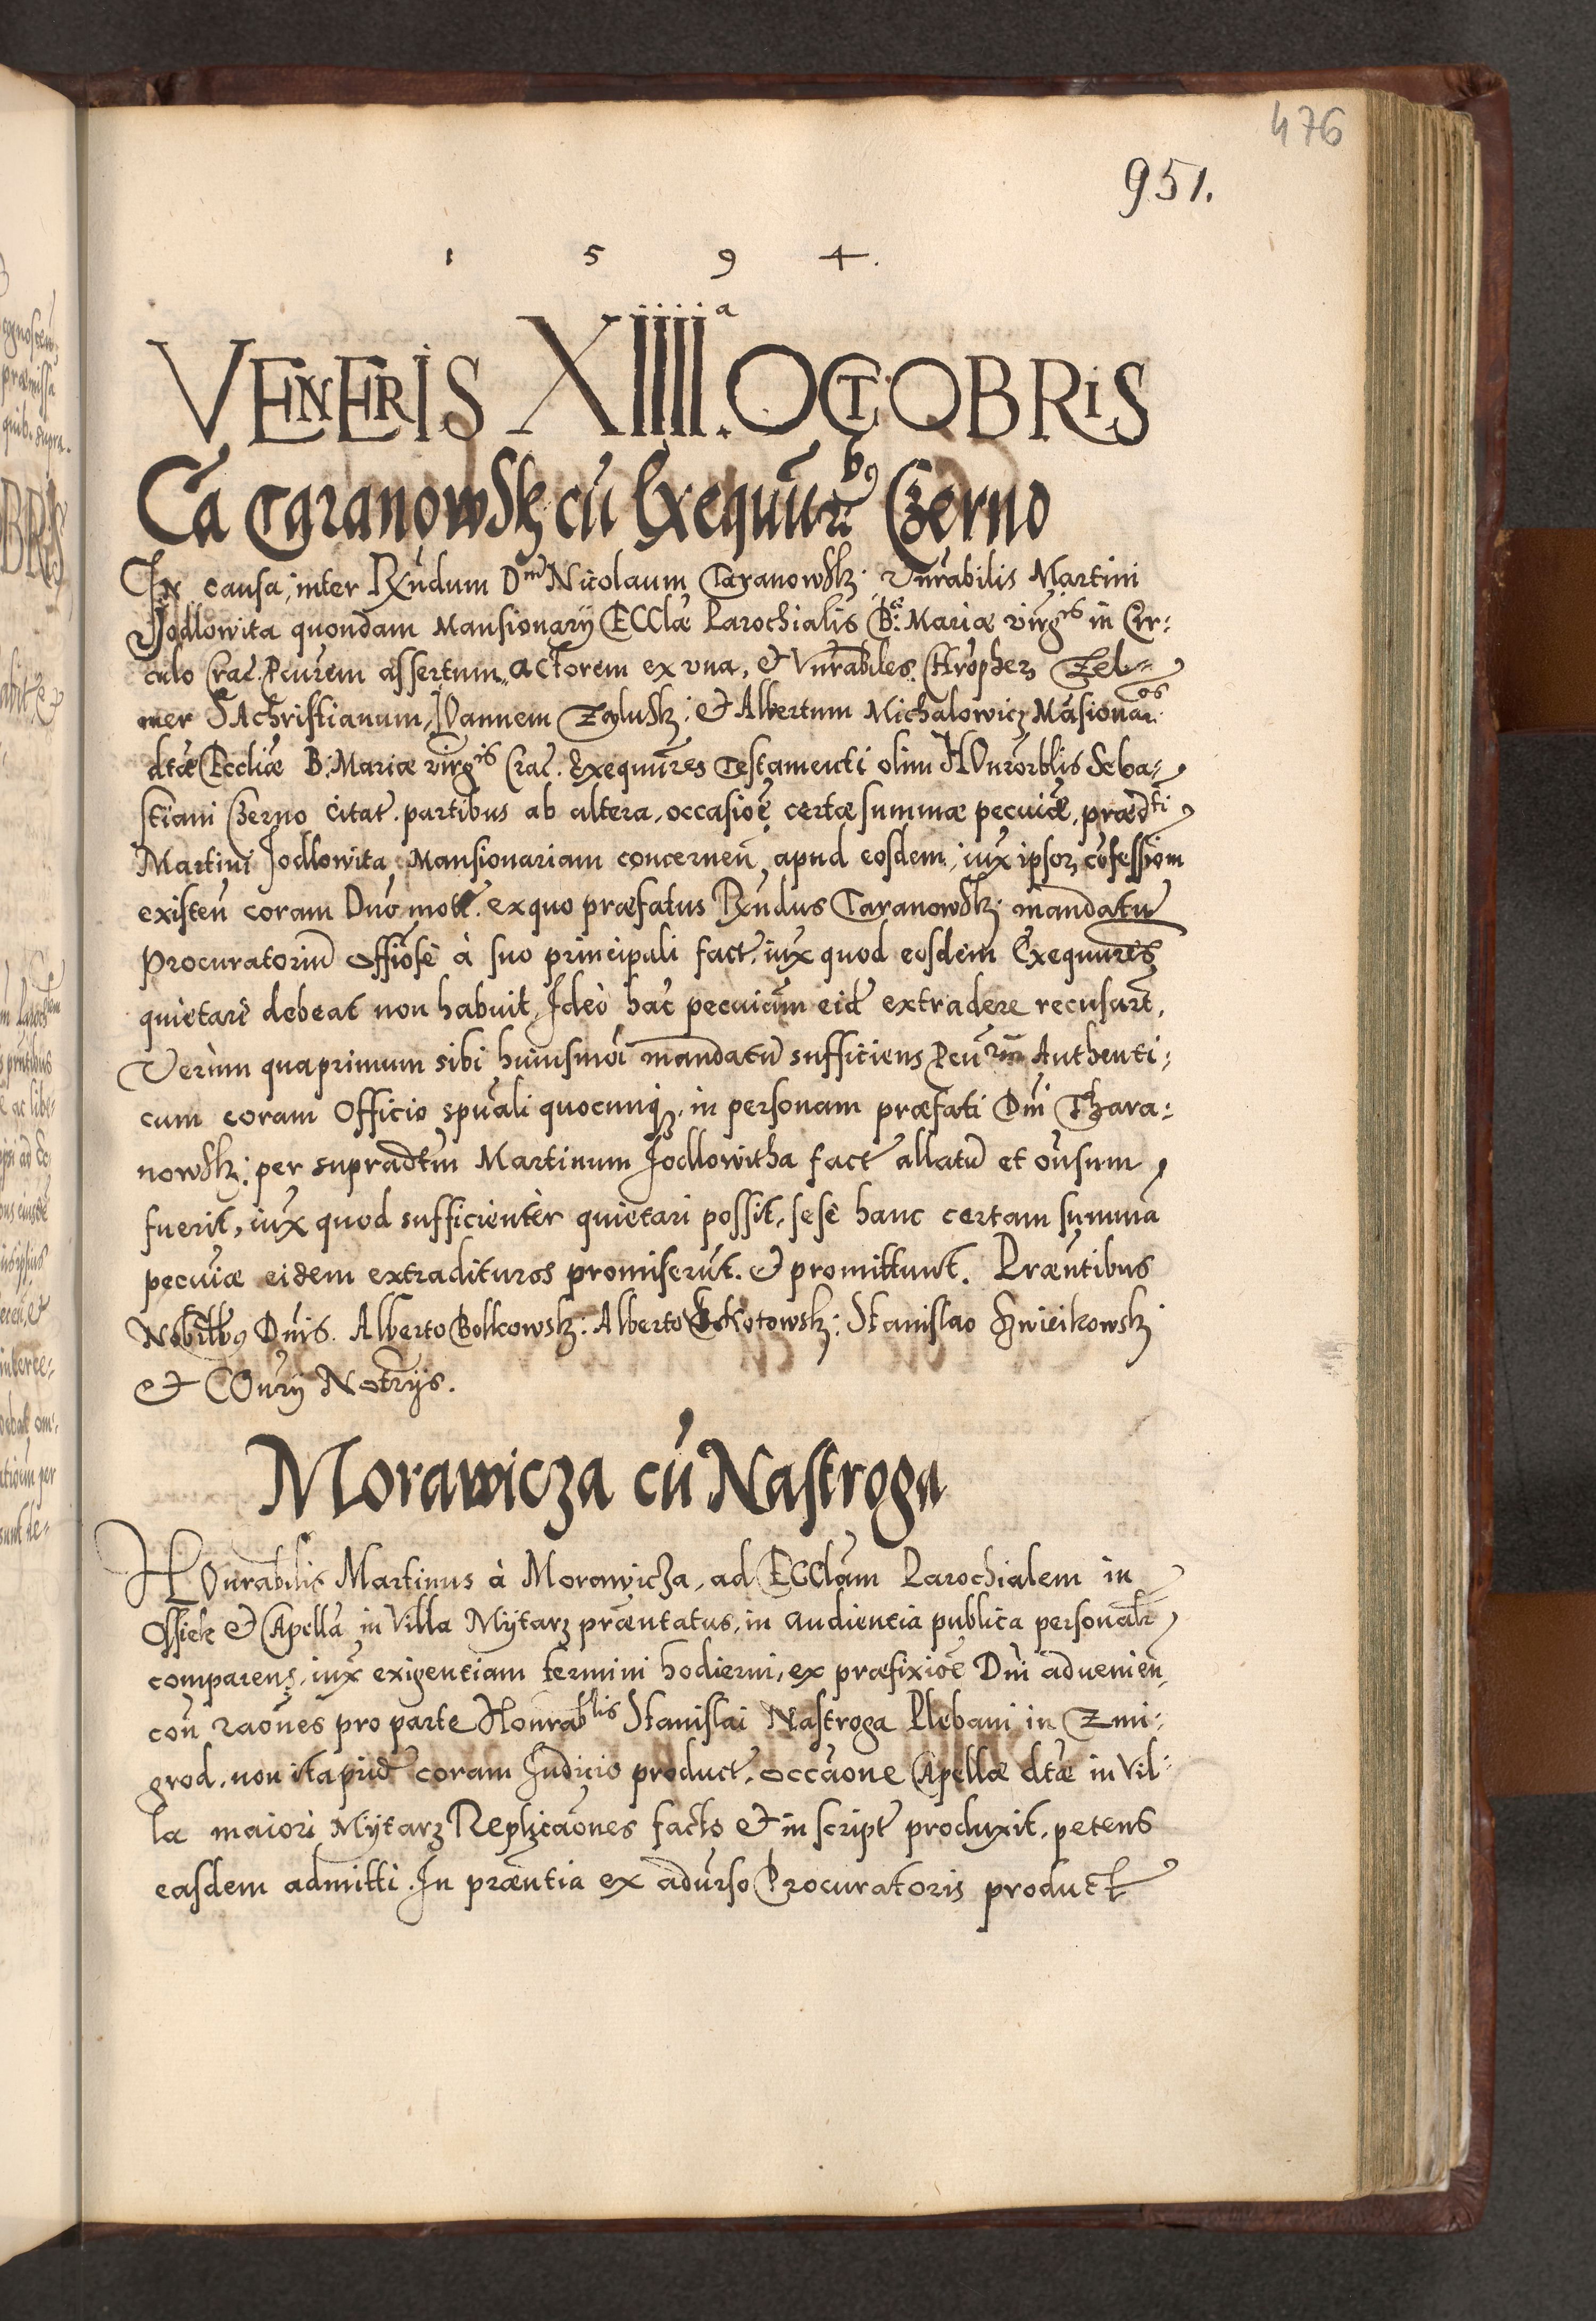 476
951.
1 5 9 4.
VENERIS XIIIIa. OCTOBRIS
Cã Taranowsk cũ Exequũrbꝰ Czerno
In causa, inter Rñdum Dnm̃ Nicolaum Taranowsk: Vnrabilis Martini
Jodlowita quondam Mansionarÿ ECClæ Parochialis Bæ: Mariæ virgis in Cir:
culo Crac. Pcurem assertum, actorem ex vna, et Vnrabiles. Chrophez Zel=
mer SAchristianum, Joannem Zalusk: et Albertum Michalowicz Mãsionarios
dtæ Eccliæ B: Mariæ virgis Crac. Exequũres Testamenti olim HOnorblis Seba=
stiani Czerno citat. partibus ab altera, occasiõe certæ summæ pecuiæ, prædti
Martini Jodlowita Mansionariam concerneñ, apud eosdem, iux ipsoꝝ cõfessiom
existeñ coram Dño mot. ex quo præfatus Rñdus Taranowsk: mandatũ
Procuratoriũ Offiose à suo principali fact. iux quod eosdem Exequũres
quietare debeat non habuit, Ideò hac pecuiam eid extradere recusart,
Verùm quaprimum sibi huiusmoi mandatũ sufficiens Pcũrm Authenti:
cum coram Officio spuali quocunqꝫ, in personam præfati Dñi Thara:
nowsk: per supradtm Martinum Jodlowitha fact allatũ et oñsum
fuerit, iux quod sufficienter quietari possit, sese hanc certam summã
pecuiæ eidem extradituros promiserũt. et promittunt. Præntibus
Nobilibꝰ Dñis. Alberto Bolkowsk: Alberto Kotowsk: Stanislao Zwieikowsk
et COnrÿ Notrÿs.
Morawicza cũ Nastroga
HOnrabilis Martinus à Morawicza, ad ECClam Parochialem in
Ossiek et CApellã in Villa Mÿtarz præntatus, in audientia publica personalr
comparens, iux exigentiam termini hodierni, ex præfixioe Dñi adueniẽn
coñ raoñes pro parte Honrablis Stanislai Nastroga Plebani in Zmi:
grod, non ita prid coram Judicio product. occaõne CApellæ dtæ in Vil:
la maiori Mÿtarz Replicaõnes facto et in script produxit, petens
easdem admitti. In præntia ex adurso Procuratoris product